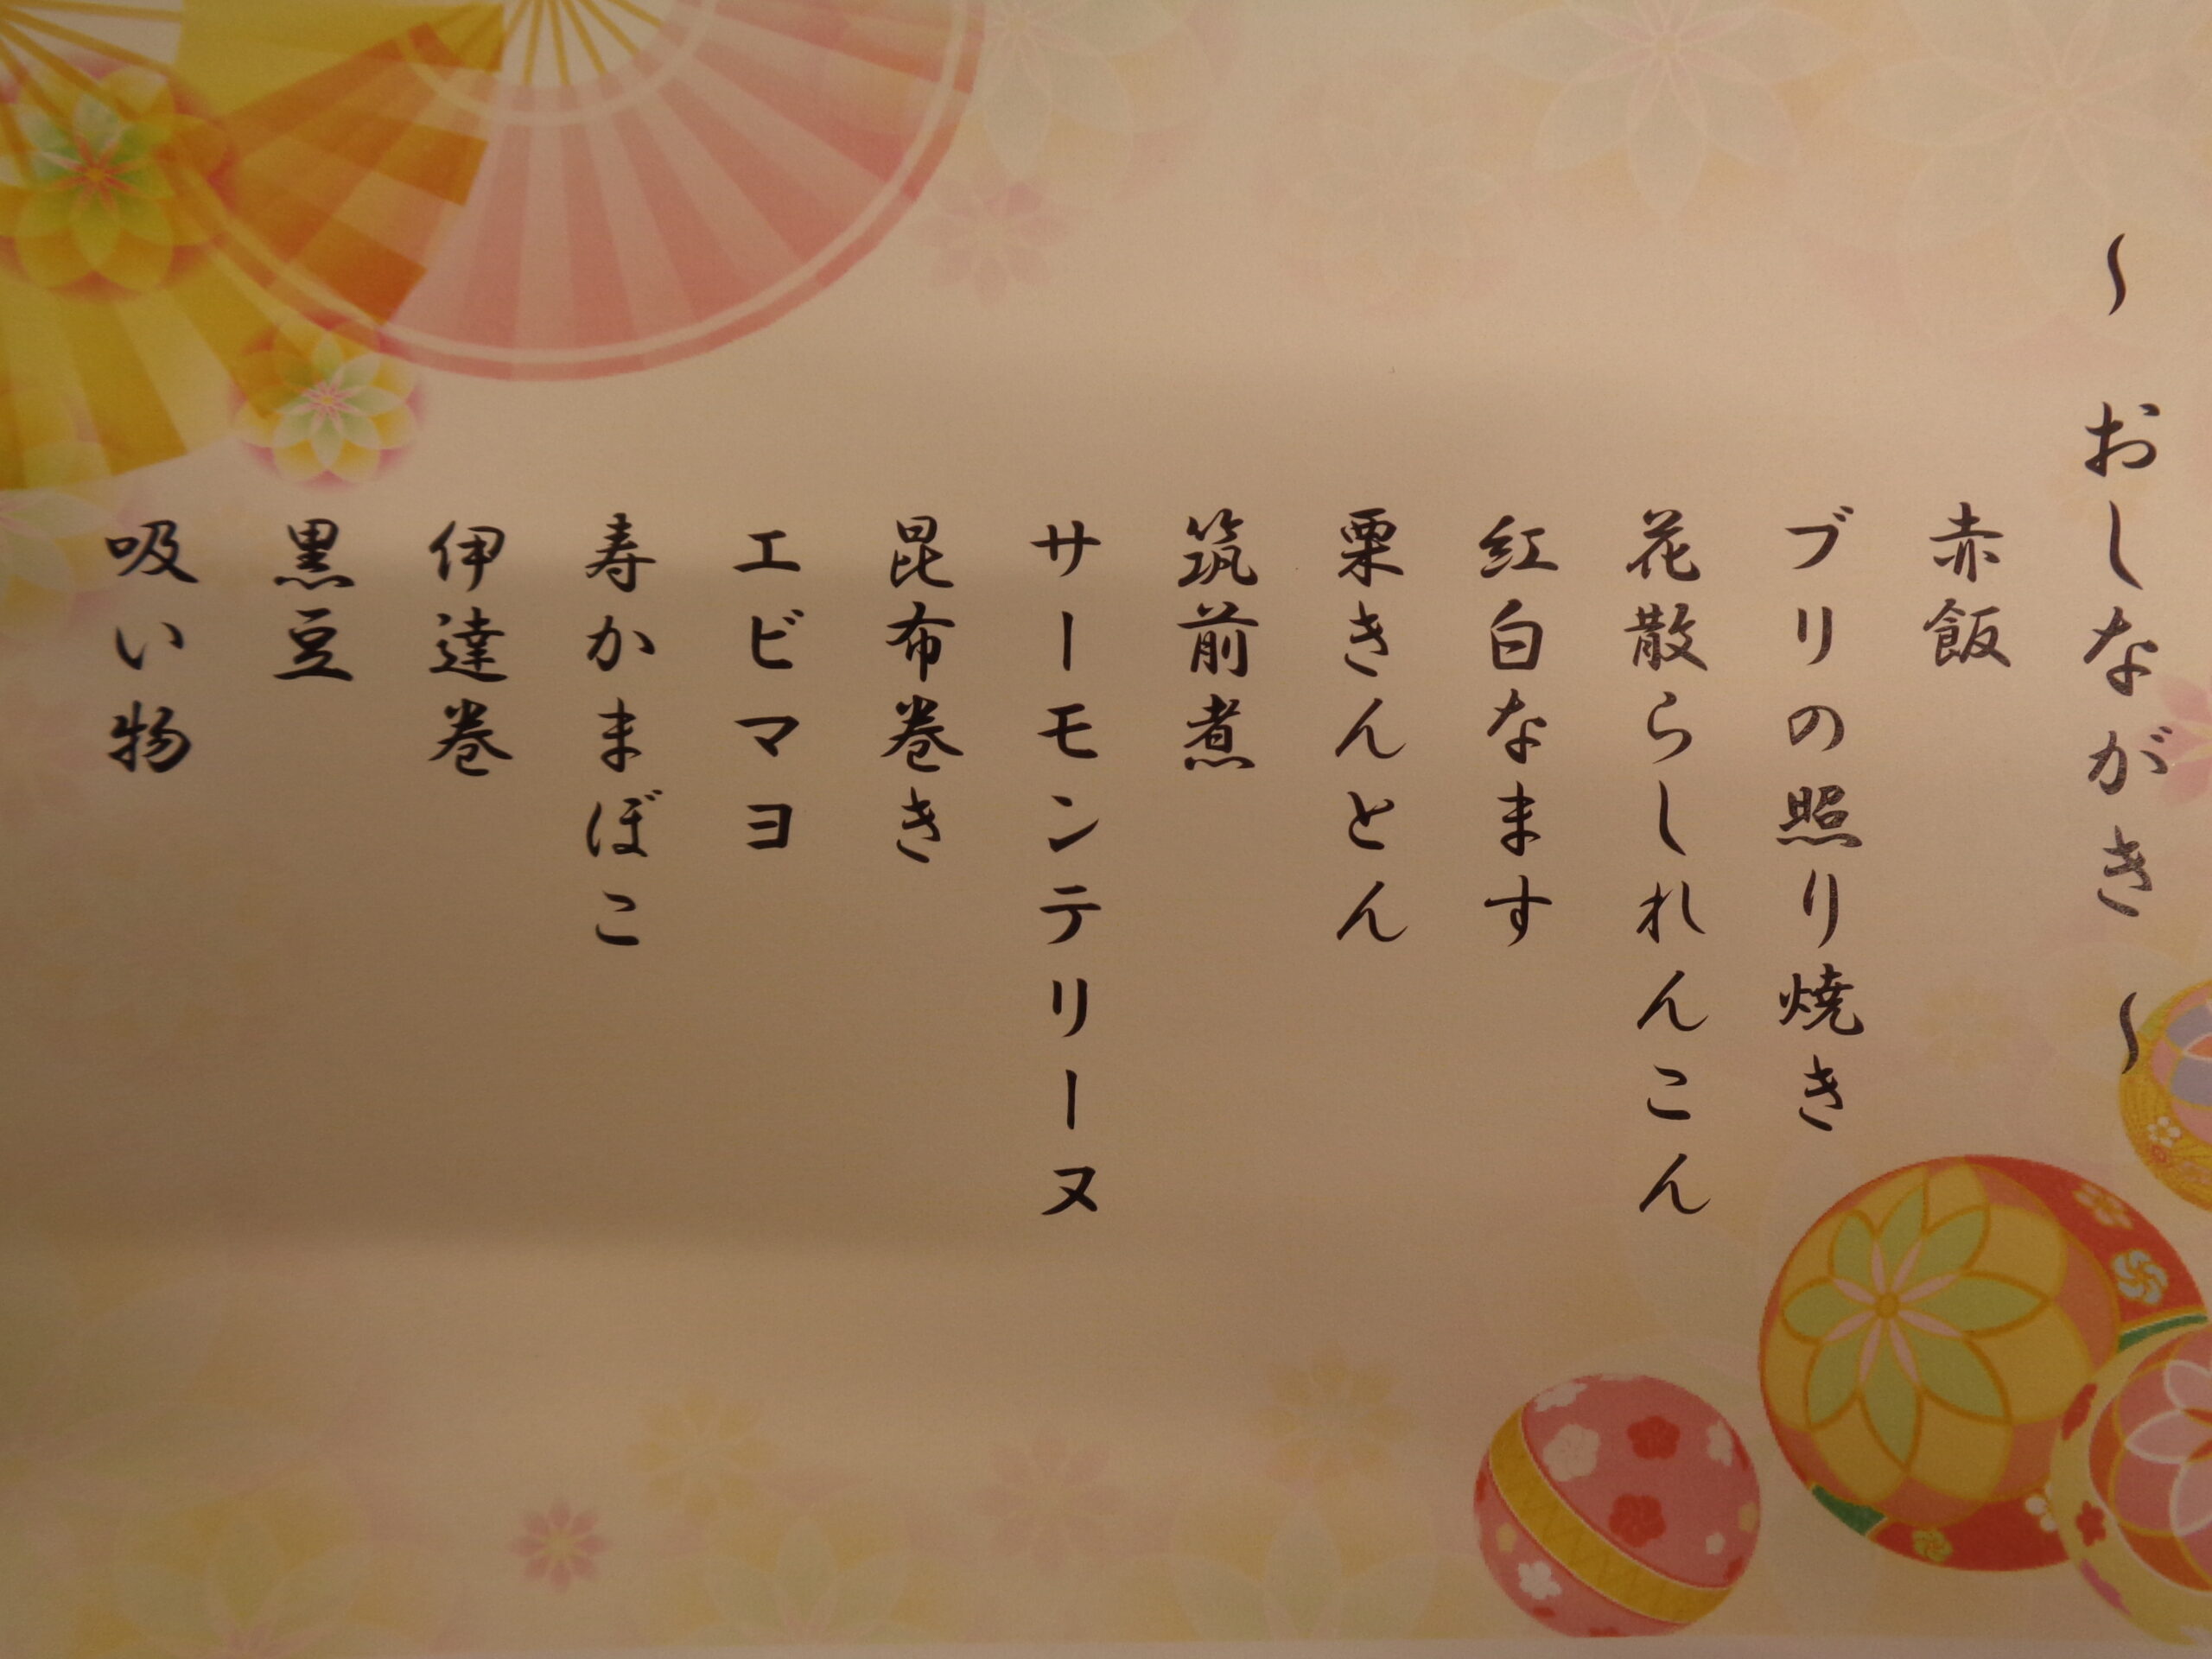 ～ おしながき ～
赤飯
ブリの照り焼き
花散らしれんこん
紅白なます
栗きんとん
筑前煮
サーモンテリーヌ
昆布巻き
エビマヨ
寿かまぼこ
伊達巻
黒豆
吸い物